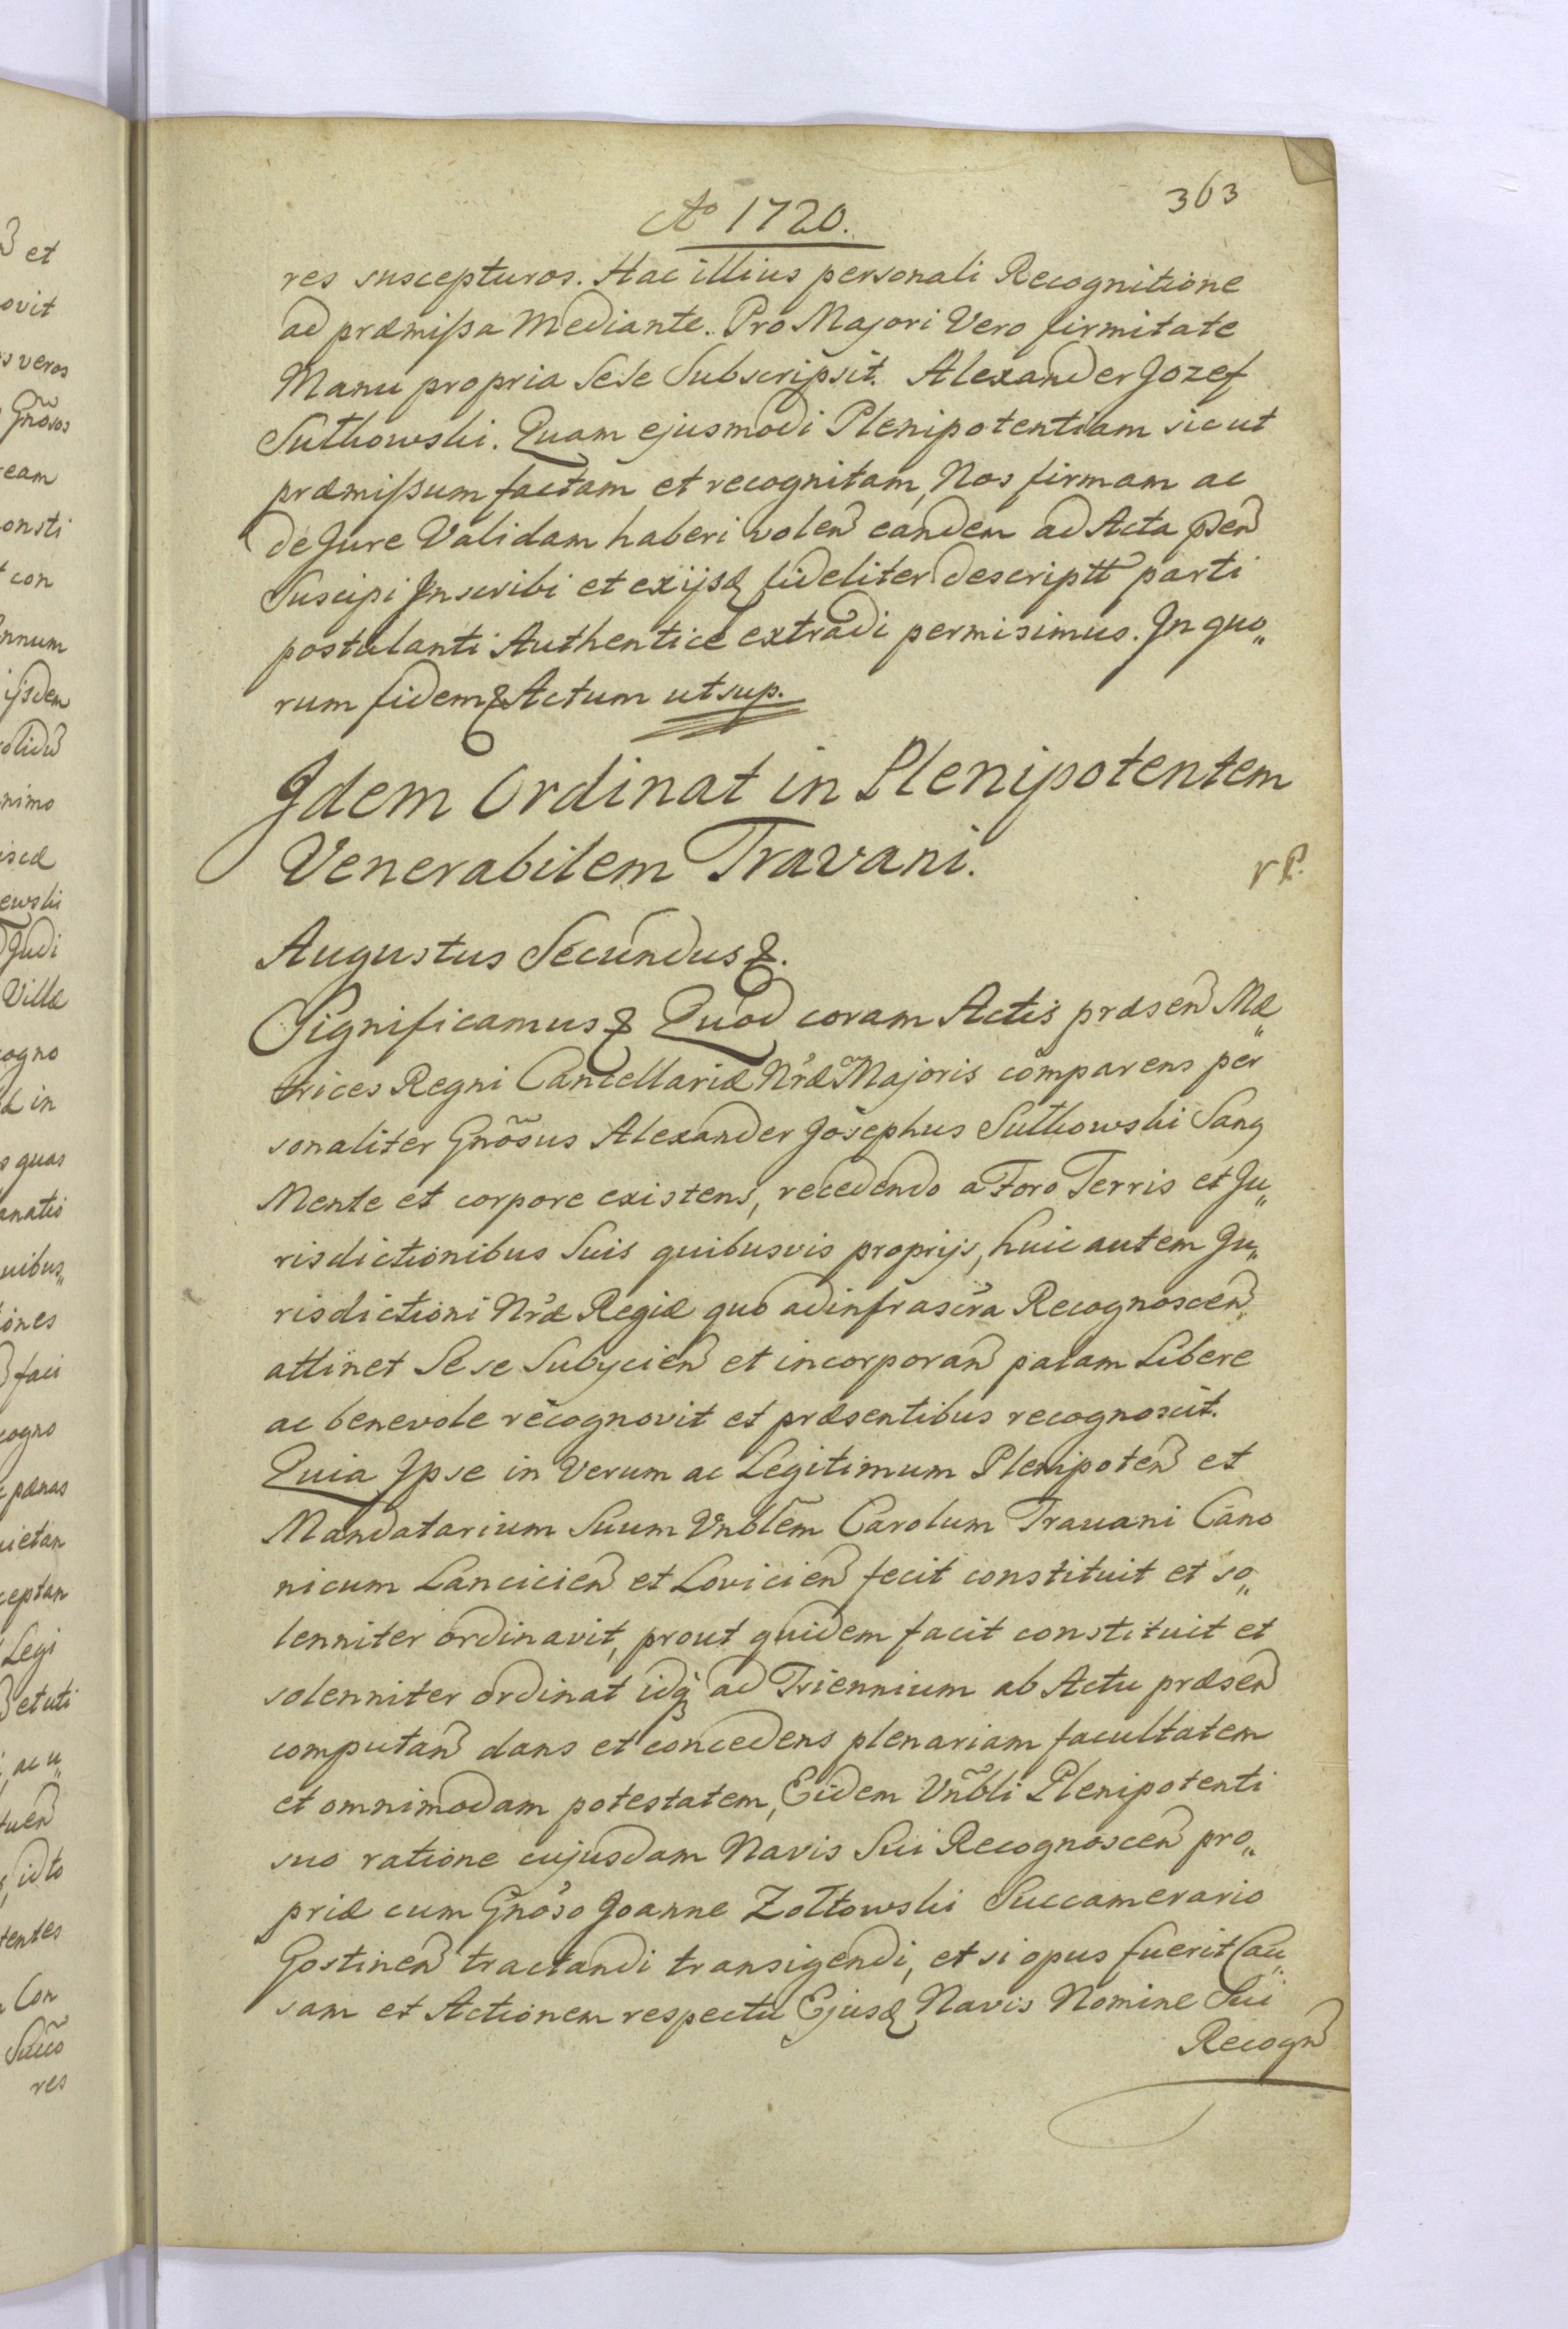 363
Aº 1720.
res suscepturos. Hac illius personali Recognitione
ad præmissa Mediante. Pro Majori Vero firmitate
Manu propria Sese Subscripsit. Alexander Jozef
Sułkowski. Quam ejusmodi Plenipotentiam sicut
præmissum factam et recognitam, Nos firmam ac
de Jure Validam haberi volen̄ eandem ad Acta pꝛ̃en̄
Suscipi Inscribi et ex ijsd. fideliter descriptt parti
postulanti Authenticè extradi permisimus. In quo„
rum fidem & Actum ut sup.
Idem Ordinat in Plenipotentem
Venerabilem Travani.
r P.
Augustus Secundus &.
Significamus & Quod coram Actis præsen̄ Mæ„
trices Regni Cancellariæ Nr̃æ Majoris comparens per
sonaliter Gnõsus Alexander Josephus Sułkowski Sang
Mente et corpore existens, recedendo a Foro Terris et Ju„
risdictionibus Suis quibusvis proprijs, huic autem Ju„
risdictioni Nr̃æ Regiæ quo ad infrascr̃a Recognoscen̄
attinet Sese Subycien̄ et incorporan̄ palam Libere
ac benevole recognovit et præsentibus recognoscit.
Quia Ipse in Verum ac Legitimum Plenipoten̄ et
Mandatarium Suum Vnblẽm Carolum Travani Cano
nicum Lancicien̄ et Lovicien̄ fecit constituit et so„
lenniter ordinavit, prout quidem facit constituit et
solenniter ordinat idq̃ ad Triennium ab Actu præsen̄
computan̄ dans et concedens plenariam facultatem
et omnimodam potestatem, Eidem Vnb̃li Plenipotenti
suo ratione cujusdam Navis Sui Recognoscen̄ pro„
priæ cum Gnõso Joanne Zołtowski Succamerario
Gostinen̄ tractandi transigendi, et si opus fuerit Cau„
sam et Actionem respectu Ejusd. Navis Nomine Sui
Recogn̄